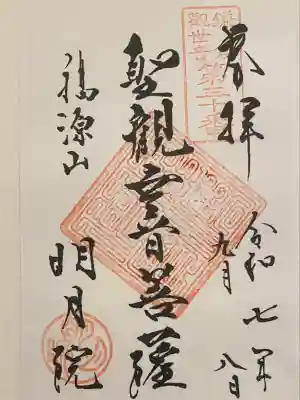 奉拝
令和七年
九月八日
鎌倉
観世音第三十番
聖観世音菩薩
福源山
明月院